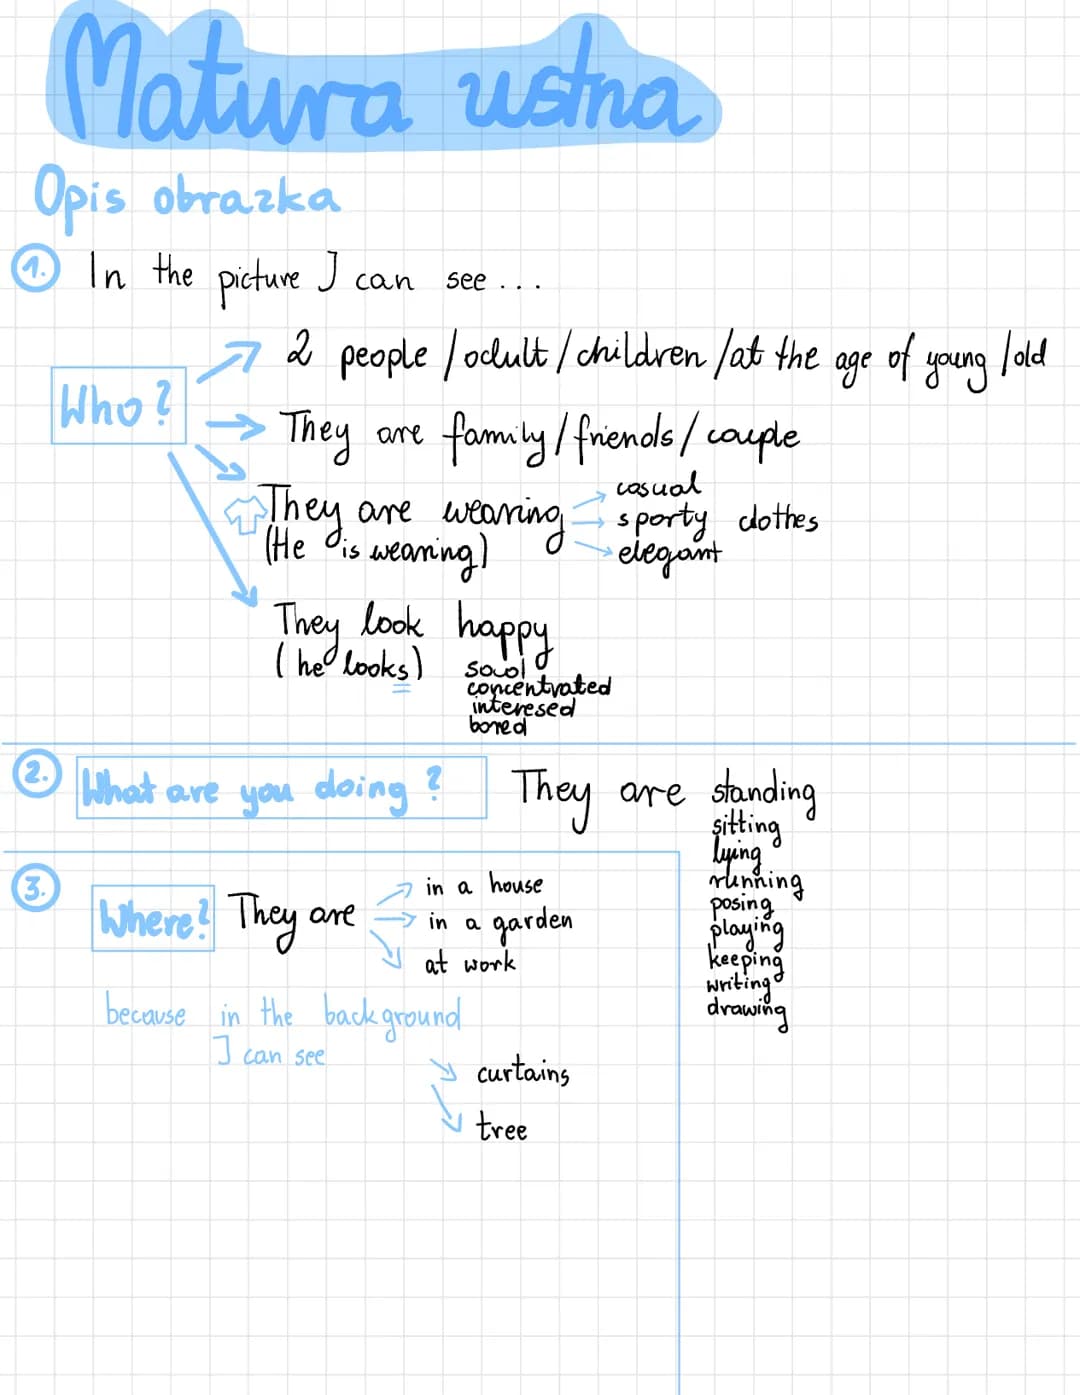 Matura ustna
Opis obrazka
1. In the picture I can see ...
Who?
2 people / adult / children / at the age of young / old
They are family / friends / couple
They are wearing
(He is wearing)
casual
sporty clothes
elegant
They look happy
(he looks)
sad
concentrated
interesed
bored
2. What are you doing? They are standing
sitting
lying
running
posing
playing
keeping
writing
drawing
3. Where? They are
in a house
in a garden
at work
because in the background
I can see
curtains
tree